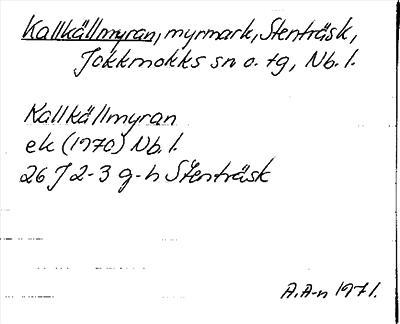 Kallkällmyran, myrmark, Stenträsk,
Jokkmokks sn o. tg, Nb. l.
Kallkällmyran
ek (1970) Nb. l.
26 J 2-3 g-h Stenträsk
A. A-n 1971.